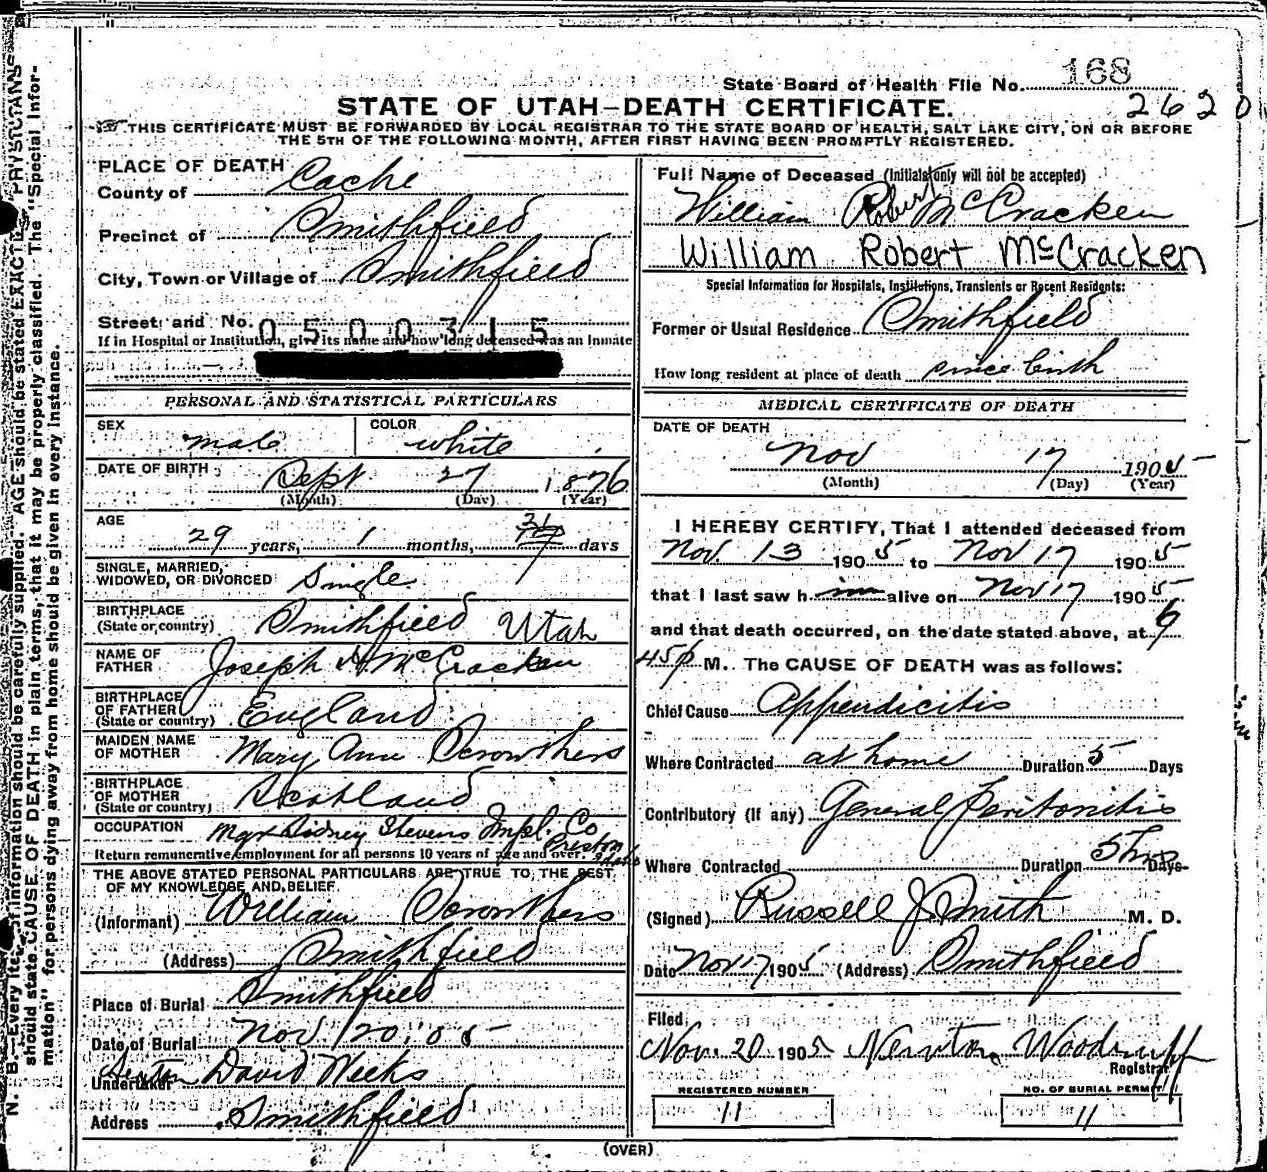 State Board of Health File No. 168
2620
STATE OF UTAH—DEATH CERTIFICATE.
THIS CERTIFICATE MUST BE FORWARDED BY LOCAL REGISTRAR TO THE STATE BOARD OF HEALTH, SALT LAKE CITY, ON OR BEFORE
THE 5TH OF THE FOLLOWING MONTH, AFTER FIRST HAVING BEEN PROMPTLY REGISTERED.
PLACE OF DEATH
County of Cache
Precinct of Smithfield
City, Town or Village of Smithfield
Street and No.
0500315
If in Hospital or Institution, give its name and how long deceased was an Inmate
PERSONAL AND STATISTICAL PARTICULARS
SEX male COLOR white
DATE OF BIRTH Sept 27 1876
(Month) (Day) (Year)
AGE
29 years, 1 months, 21 days
SINGLE, MARRIED,
WIDOWED, OR DIVORCED Single
BIRTHPLACE
(State or country) Smithfield Utah
NAME OF
FATHER Joseph H McCracken
BIRTHPLACE
OF FATHER
(State or country) England
MAIDEN NAME
OF MOTHER Mary Ann Scrowthers
BIRTHPLACE
OF MOTHER
(State or country) Scotland
OCCUPATION Mgr Sidney Stevens Impl. Co
Preston Idaho
Return remunerative employment for all persons 10 years of age and over.
THE ABOVE STATED PERSONAL PARTICULARS ARE TRUE TO THE BEST
OF MY KNOWLEDGE AND BELIEF.
(Informant) William Scrowthers
(Address) Smithfield
Place of Burial Smithfield
Date of Burial Nov 20, 05
Sexton
Undertaker David Weeks
Address Smithfield
Full Name of Deceased (Initials only will not be accepted)
William Robert McCracken
William Robert McCracken
Special Information for Hospitals, Institutions, Transients or Recent Residents:
Former or Usual Residence Smithfield
How long resident at place of death since birth
MEDICAL CERTIFICATE OF DEATH
DATE OF DEATH
Nov 17 1905
(Month) (Day) (Year)
I HEREBY CERTIFY, That I attended deceased from
Nov. 13 1905 to Nov 17 1905
that I last saw him alive on Nov 17 1905
and that death occurred, on the date stated above, at 6
45 p M. The CAUSE OF DEATH was as follows:
Chief Cause Appendicitis
Where Contracted at home Duration 5 Days
Contributory (if any) General Peritonitis
Where Contracted Duration 5 hrs Days
(Signed) Russell J. Smith M. D.
Date Nov 17 1905 (Address) Smithfield
Filed
Nov. 20 1905 Newton Woodruff
Registrar
REGISTERED NUMBER
11
NO. OF BURIAL PERMIT
11
(OVER)
N. B.—Every item of information should be carefully supplied. AGE should be stated EXACTLY. PHYSICIANS
should state CAUSE OF DEATH in plain terms, that it may be properly classified. The "Special Infor-
mation" for persons dying away from home should be given in every instance.